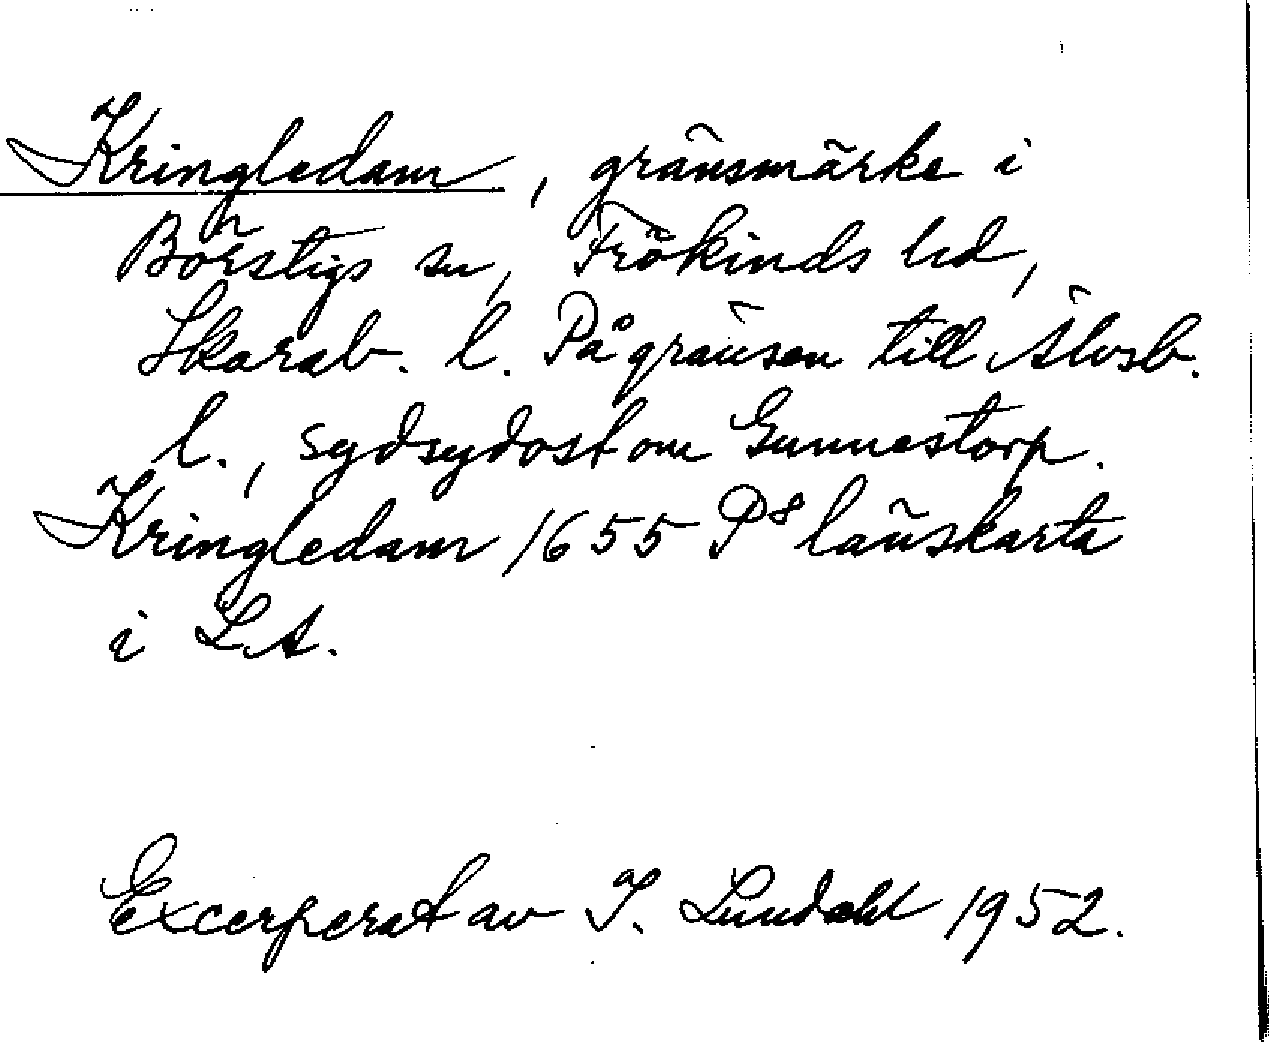 Kringledam, gränsmärke i
Börstigs sn, Frökinds hd,
Skarab. l. På gränsen till Älvsb.
l., sydsydost om Gunnestorp.
Kringledam 1655 P8 länskarta
i L.A.
Excerperat av I. Lundahl 1952.